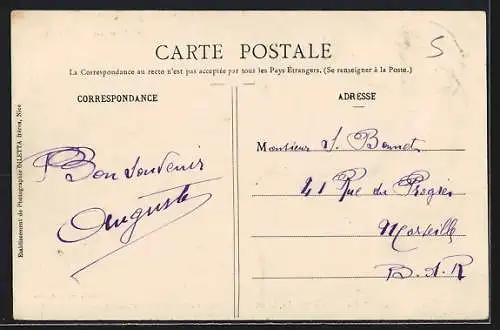 CARTE POSTALE
La Correspondance au recto n'est pas acceptée par tous les Pays Étrangers. (Se renseigner à la Poste.)
5
CORRESPONDANCE
Bon souvenir
Auguste
ADRESSE
Monsieur J. Bonnet
41 Rue du Progrès
Marseille
B. d. R
Etablissement de Photographie GILETTA frères, Nice